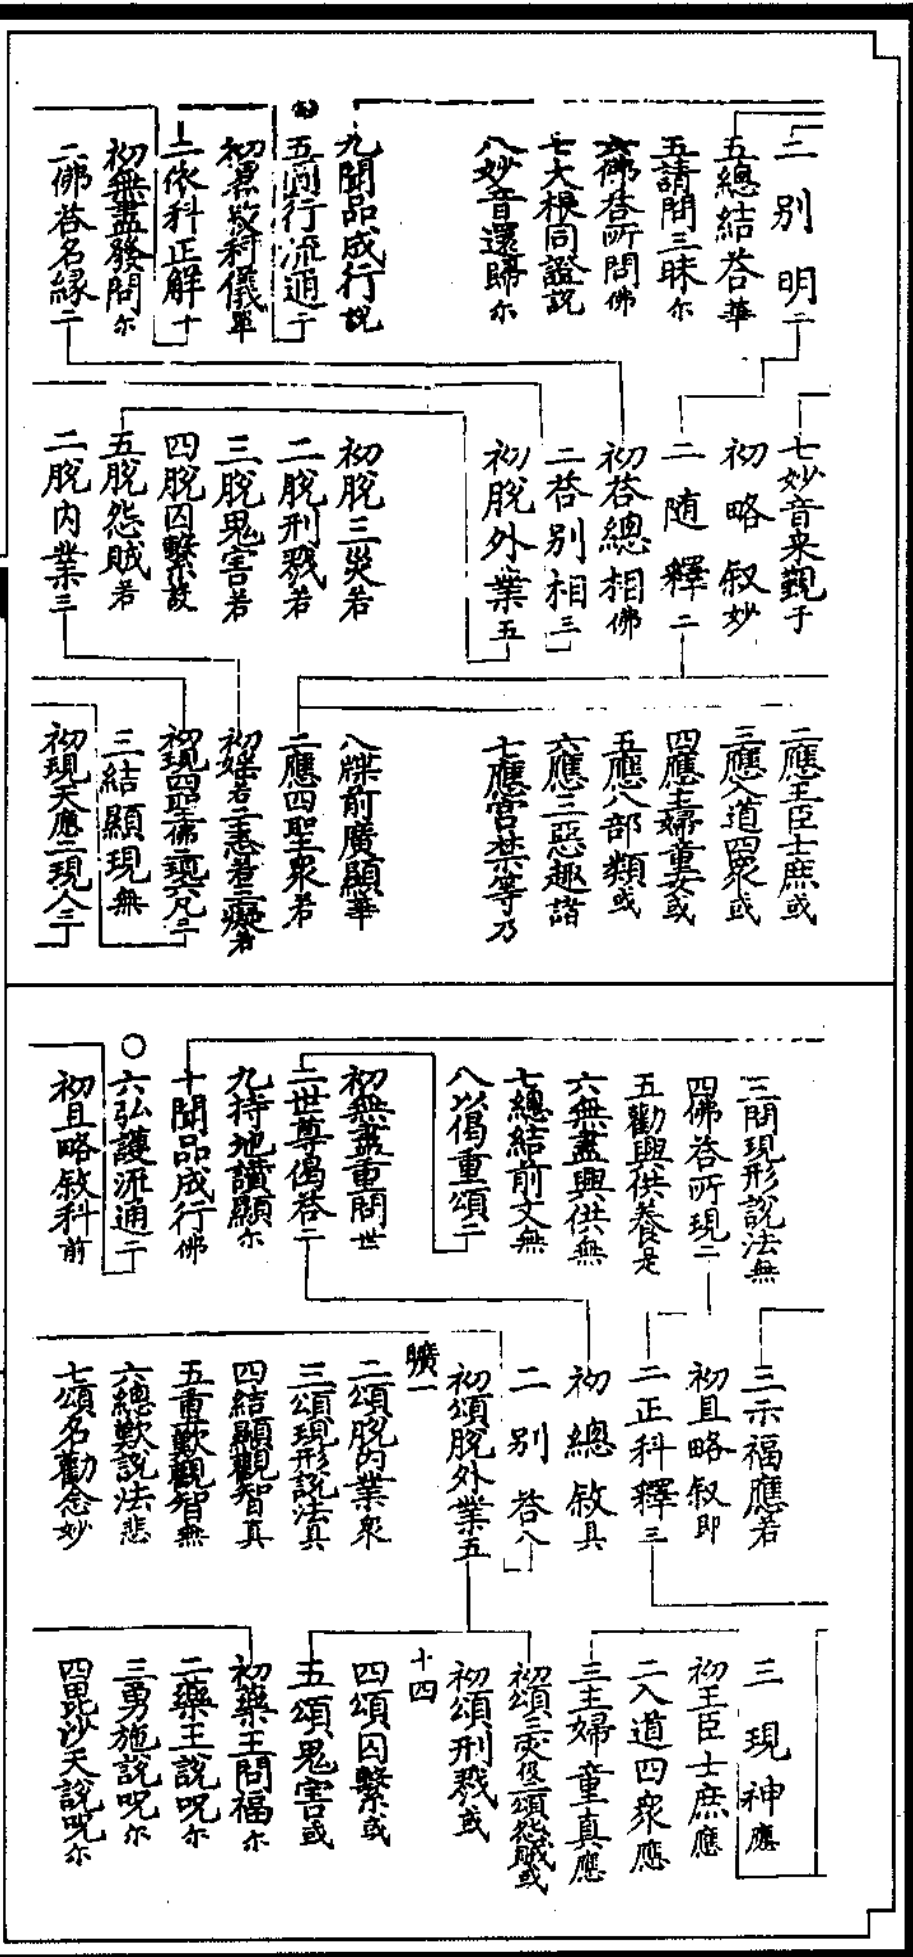 二別明二
五總結荅華
五請問三昧尔
六佛荅所問佛
七大根同證說
八妙音還歸尔
九聞品成行說
五同行流通二
初敘科儀單
二依科正解十
初無盡發問尔
二佛荅名緣二
七妙音来觀于
初略叙妙
二随釋二
初荅總相佛
二荅別相三
初脫外業五
初脫三災若
二脫刑戮若
三脫鬼害若
四脫囚繫設
五脫怨賊若
二脫内業三
二應王臣士庶或
三應入道四衆或
四應主婦童女或
五應八部類或
六應三惡趣諸
七應宮禁等乃
八牒前廣顯華
二應四聖衆若
初婬若二恚若三癡若
初現四聖佛二現六凡二
三結顯現無
初現天應二現人二
三問現形說法無
四佛荅所現二
五勸興供養是
六無盡興供無
七總結前文無
八以偈重頌二
初無盡重問世
二世尊偈荅二
九持地讃顯尔
十聞品成行佛
六弘護流通二
初且略敘科前
三示福應若
初且略叙即
二正科釋三
初總敘具
二別荅八
初頌脫外業五
曠一
二頌脫内業衆
三頌現形說法具
四結顯觀智真
五重歎觀智無
六總歎說法悲
七頌名勸念妙
三現神應
初王臣士庶應
二入道四衆應
三主婦童真應
初頌三灾假二頌怨賊或
初頌刑戮或
十四
四頌囚繫或
五頌鬼害或
初藥王問福尔
二藥王說呪尔
三勇施說呪尔
四毘沙天說呪尔